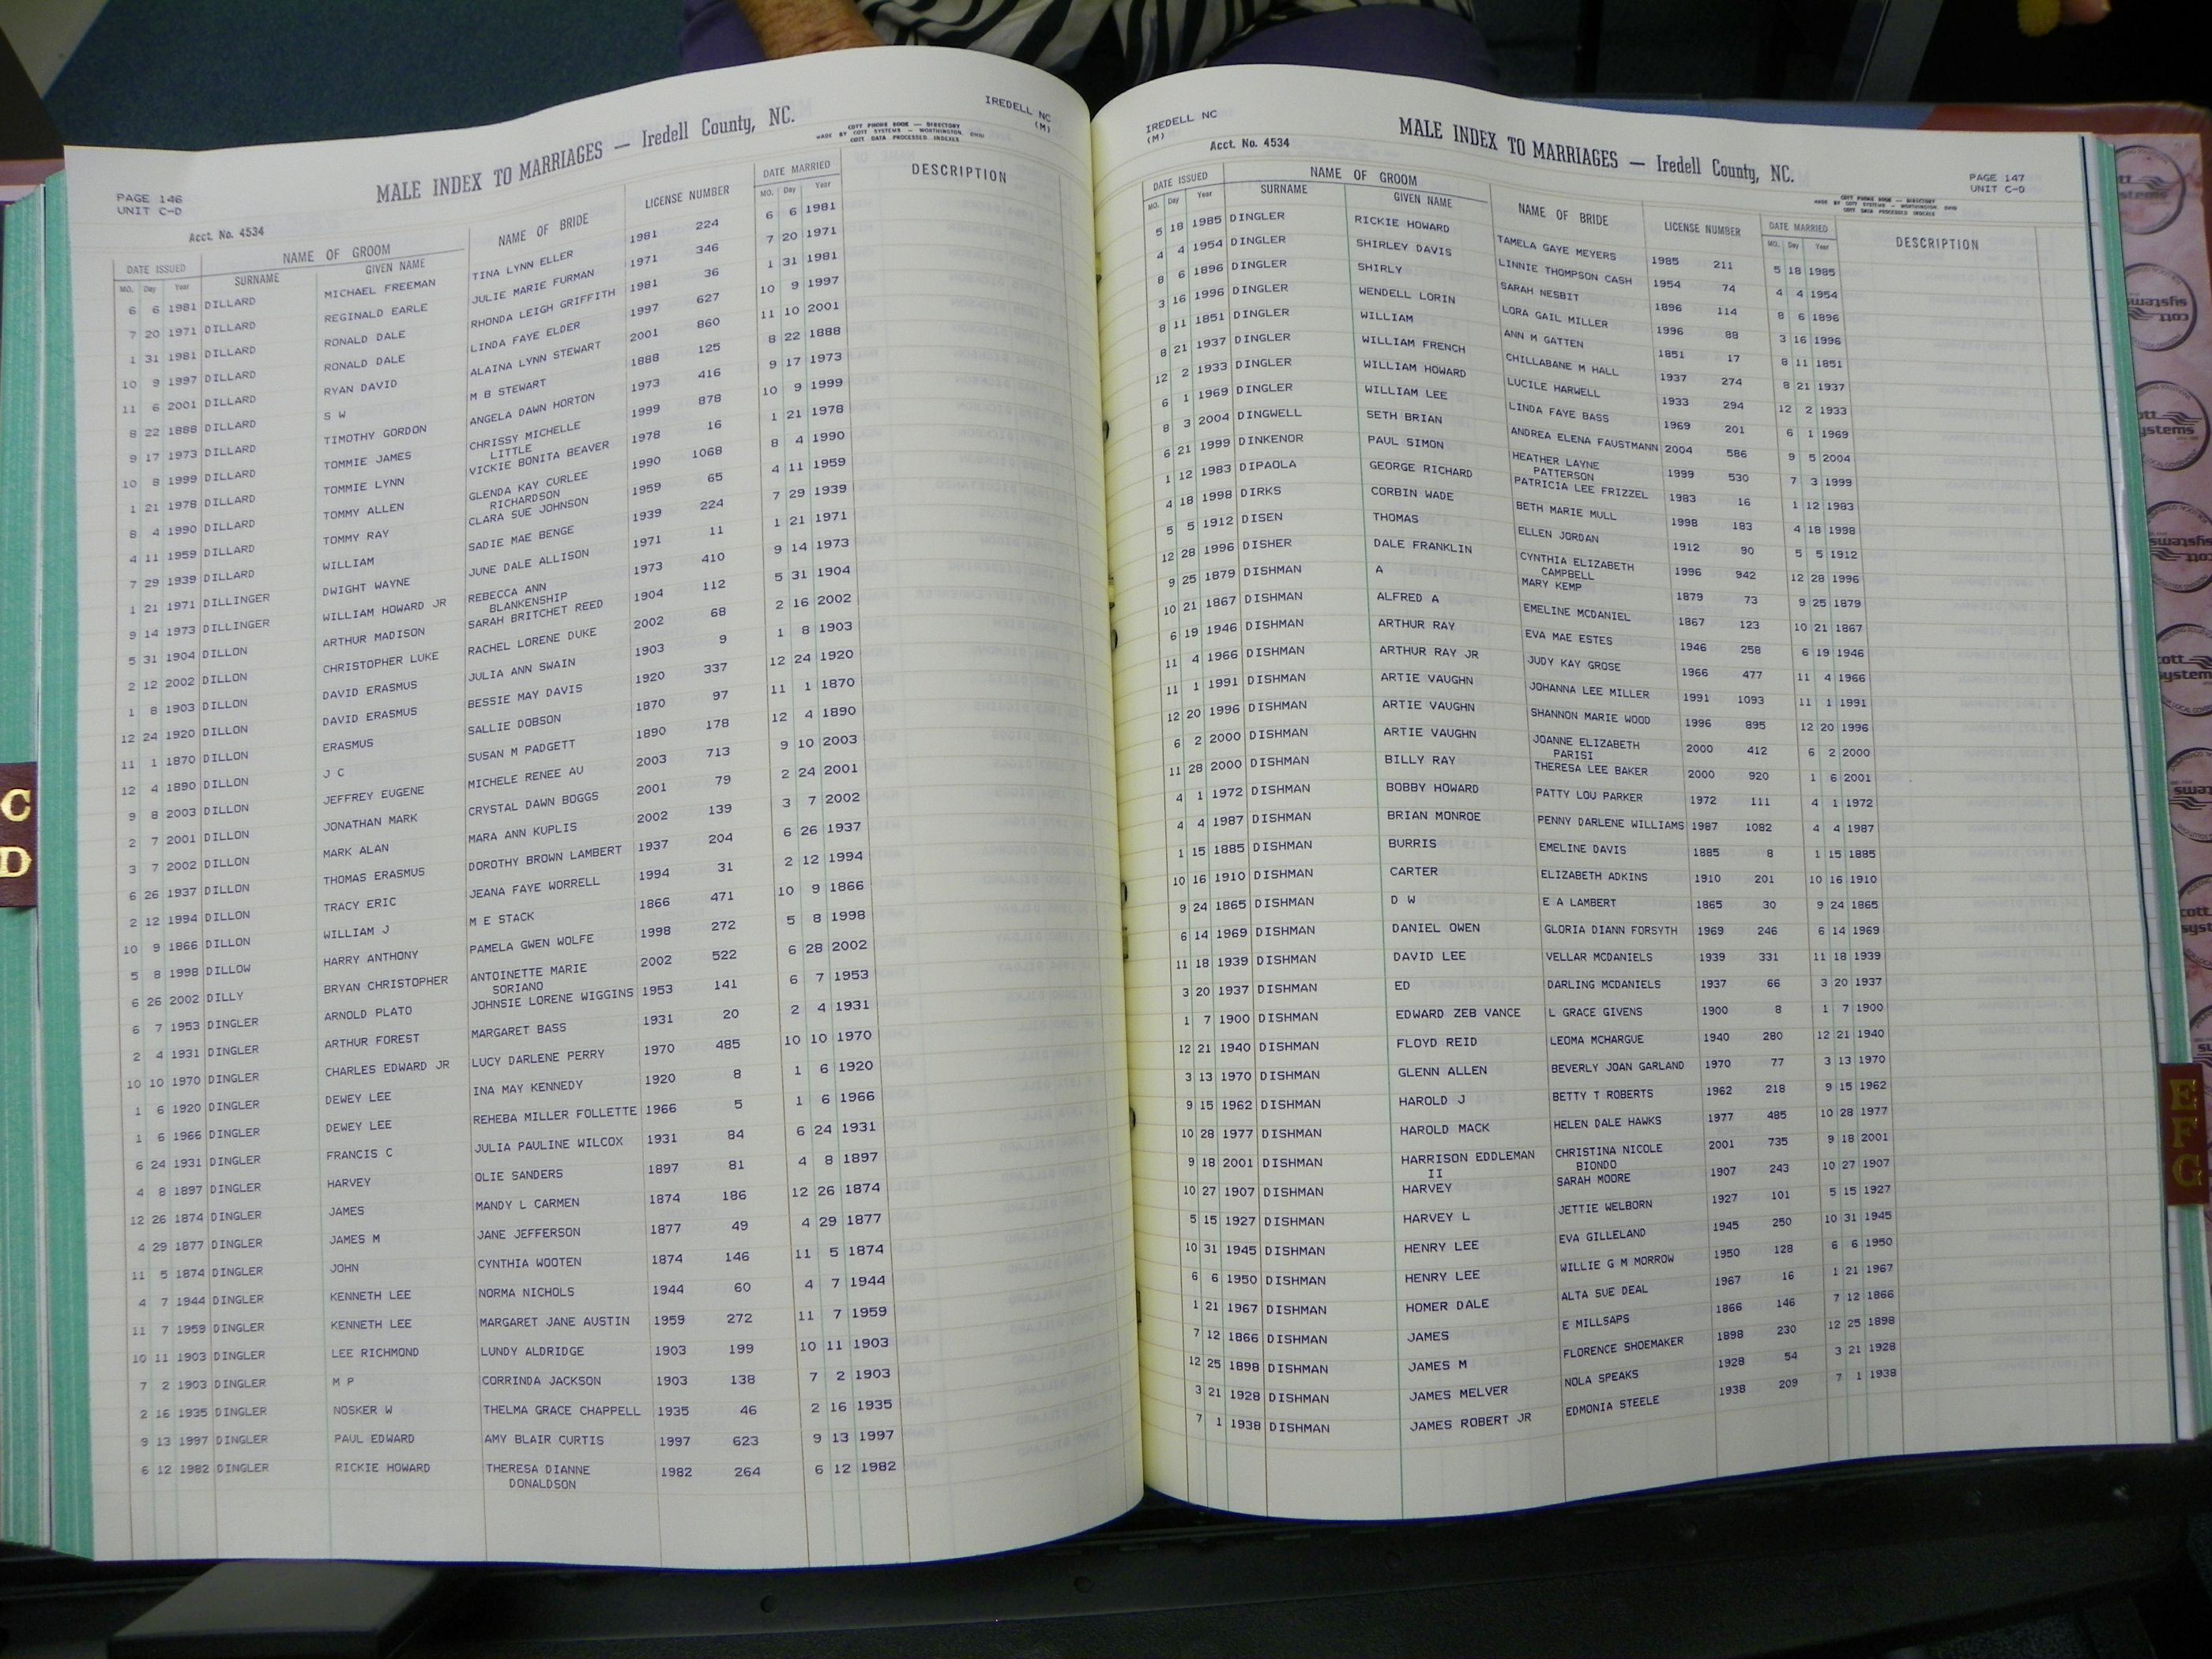 IREDELL NC
(M)
MALE INDEX TO MARRIAGES — Iredell County, NC.
COTT PHONE BOOK — DIRECTORY
MADE BY COTT SYSTEMS — WORTHINGTON, OHIO
COTT DATA PROCESSED INDEXES
PAGE 146
UNIT C-D
Acct. No. 4534
DATE ISSUED NAME OF GROOM NAME OF BRIDE LICENSE NUMBER DATE MARRIED DESCRIPTION
MO. Day Year SURNAME GIVEN NAME MO. Day Year
6 6 1981 DILLARD MICHAEL FREEMAN TINA LYNN ELLER 1981 224 6 6 1981
7 20 1971 DILLARD REGINALD EARLE JULIE MARIE FURMAN 1971 346 7 20 1971
1 31 1981 DILLARD RONALD DALE RHONDA LEIGH GRIFFITH 1981 36 1 31 1981
10 9 1997 DILLARD RONALD DALE LINDA FAYE ELDER 1997 627 10 9 1997
11 6 2001 DILLARD RYAN DAVID ALAINA LYNN STEWART 2001 860 11 10 2001
8 22 1888 DILLARD S W M B STEWART 1888 125 8 22 1888
9 17 1973 DILLARD TIMOTHY GORDON ANGELA DAWN HORTON 1973 416 9 17 1973
10 8 1999 DILLARD TOMMIE JAMES CHRISSY MICHELLE 1999 878 10 9 1999
LITTLE
1 21 1978 DILLARD TOMMIE LYNN VICKIE BONITA BEAVER 1978 16 1 21 1978
8 4 1990 DILLARD TOMMY ALLEN GLENDA KAY CURLEE 1990 1068 8 4 1990
RICHARDSON
4 11 1959 DILLARD TOMMY RAY CLARA SUE JOHNSON 1959 65 4 11 1959
7 29 1939 DILLARD WILLIAM SADIE MAE BENGE 1939 224 7 29 1939
1 21 1971 DILLINGER DWIGHT WAYNE JUNE DALE ALLISON 1971 11 1 21 1971
9 14 1973 DILLINGER WILLIAM HOWARD JR REBECCA ANN 1973 410 9 14 1973
BLANKENSHIP
5 31 1904 DILLON ARTHUR MADISON SARAH BRITCHET REED 1904 112 5 31 1904
2 12 2002 DILLON CHRISTOPHER LUKE RACHEL LORENE DUKE 2002 68 2 16 2002
1 8 1903 DILLON DAVID ERASMUS JULIA ANN SWAIN 1903 9 1 8 1903
12 24 1920 DILLON DAVID ERASMUS BESSIE MAY DAVIS 1920 337 12 24 1920
11 1 1870 DILLON ERASMUS SALLIE DOBSON 1870 97 11 1 1870
12 4 1890 DILLON J C SUSAN M PADGETT 1890 178 12 4 1890
9 8 2003 DILLON JEFFREY EUGENE MICHELE RENEE AU 2003 713 9 10 2003
2 7 2001 DILLON JONATHAN MARK CRYSTAL DAWN BOGGS 2001 79 2 24 2001
3 7 2002 DILLON MARK ALAN MARA ANN KUPLIS 2002 139 3 7 2002
6 26 1937 DILLON THOMAS ERASMUS DOROTHY BROWN LAMBERT 1937 204 6 26 1937
2 12 1994 DILLON TRACY ERIC JEANA FAYE WORRELL 1994 31 2 12 1994
10 9 1866 DILLON WILLIAM J M E STACK 1866 471 10 9 1866
5 8 1998 DILLOW HARRY ANTHONY PAMELA GWEN WOLFE 1998 272 5 8 1998
6 26 2002 DILLY BRYAN CHRISTOPHER ANTOINETTE MARIE 2002 522 6 28 2002
SORIANO
6 7 1953 DINGLER ARNOLD PLATO JOHNSIE LORENE WIGGINS 1953 141 6 7 1953
2 4 1931 DINGLER ARTHUR FOREST MARGARET BASS 1931 20 2 4 1931
10 10 1970 DINGLER CHARLES EDWARD JR LUCY DARLENE PERRY 1970 485 10 10 1970
1 6 1920 DINGLER DEWEY LEE INA MAY KENNEDY 1920 8 1 6 1920
1 6 1966 DINGLER DEWEY LEE REHEBA MILLER FOLLETTE 1966 5 1 6 1966
6 24 1931 DINGLER FRANCIS C JULIA PAULINE WILCOX 1931 84 6 24 1931
4 8 1897 DINGLER HARVEY OLIE SANDERS 1897 81 4 8 1897
12 26 1874 DINGLER JAMES MANDY L CARMEN 1874 186 12 26 1874
4 29 1877 DINGLER JAMES M JANE JEFFERSON 1877 49 4 29 1877
11 5 1874 DINGLER JOHN CYNTHIA WOOTEN 1874 146 11 5 1874
4 7 1944 DINGLER KENNETH LEE NORMA NICHOLS 1944 60 4 7 1944
11 7 1959 DINGLER KENNETH LEE MARGARET JANE AUSTIN 1959 272 11 7 1959
10 11 1903 DINGLER LEE RICHMOND LUNDY ALDRIDGE 1903 199 10 11 1903
7 2 1903 DINGLER M P CORRINDA JACKSON 1903 138 7 2 1903
2 16 1935 DINGLER NOSKER W THELMA GRACE CHAPPELL 1935 46 2 16 1935
9 13 1997 DINGLER PAUL EDWARD AMY BLAIR CURTIS 1997 623 9 13 1997
6 12 1982 DINGLER RICKIE HOWARD THERESA DIANNE 1982 264 6 12 1982
DONALDSON
C
D
IREDELL NC
(M)
Acct. No. 4534
MALE INDEX TO MARRIAGES — Iredell County, NC.
PAGE 147
UNIT C-D
COTT PHONE BOOK — DIRECTORY
MADE BY COTT SYSTEMS — WORTHINGTON, OHIO
COTT DATA PROCESSED INDEXES
DATE ISSUED NAME OF GROOM NAME OF BRIDE LICENSE NUMBER DATE MARRIED DESCRIPTION
MO. Day Year SURNAME GIVEN NAME MO. Day Year
5 18 1985 DINGLER RICKIE HOWARD TAMELA GAYE MEYERS 1985 211 5 18 1985
4 4 1954 DINGLER SHIRLEY DAVIS LINNIE THOMPSON CASH 1954 74 4 4 1954
8 6 1896 DINGLER SHIRLY SARAH NESBIT 1896 114 8 6 1896
3 16 1996 DINGLER WENDELL LORIN LORA GAIL MILLER 1996 88 3 16 1996
8 11 1851 DINGLER WILLIAM ANN M GATTEN 1851 17 8 11 1851
8 21 1937 DINGLER WILLIAM FRENCH CHILLABANE M HALL 1937 274 8 21 1937
12 2 1933 DINGLER WILLIAM HOWARD LUCILE HARWELL 1933 294 12 2 1933
6 1 1969 DINGLER WILLIAM LEE LINDA FAYE BASS 1969 201 6 1 1969
8 3 2004 DINGWELL SETH BRIAN ANDREA ELENA FAUSTMANN 2004 586 9 5 2004
6 21 1999 DINKENOR PAUL SIMON HEATHER LAYNE 1999 530 7 3 1999
PATTERSON
1 12 1983 DIPAOLA GEORGE RICHARD PATRICIA LEE FRIZZEL 1983 16 1 12 1983
4 18 1998 DIRKS CORBIN WADE BETH MARIE MULL 1998 183 4 18 1998
5 5 1912 DISEN THOMAS ELLEN JORDAN 1912 90 5 5 1912
12 28 1996 DISHER DALE FRANKLIN CYNTHIA ELIZABETH 1996 942 12 28 1996
CAMPBELL
9 25 1879 DISHMAN A MARY KEMP 1879 73 9 25 1879
10 21 1867 DISHMAN ALFRED A EMELINE MCDANIEL 1867 123 10 21 1867
6 19 1946 DISHMAN ARTHUR RAY EVA MAE ESTES 1946 258 6 19 1946
11 4 1966 DISHMAN ARTHUR RAY JR JUDY KAY GROSE 1966 477 11 4 1966
11 1 1991 DISHMAN ARTIE VAUGHN JOHANNA LEE MILLER 1991 1093 11 1 1991
12 20 1996 DISHMAN ARTIE VAUGHN SHANNON MARIE WOOD 1996 895 12 20 1996
6 2 2000 DISHMAN ARTIE VAUGHN JOANNE ELIZABETH 2000 412 6 2 2000
PARISI
11 28 2000 DISHMAN BILLY RAY THERESA LEE BAKER 2000 920 1 6 2001
4 1 1972 DISHMAN BOBBY HOWARD PATTY LOU PARKER 1972 111 4 1 1972
4 4 1987 DISHMAN BRIAN MONROE PENNY DARLENE WILLIAMS 1987 1082 4 4 1987
1 15 1885 DISHMAN BURRIS EMELINE DAVIS 1885 8 1 15 1885
10 16 1910 DISHMAN CARTER ELIZABETH ADKINS 1910 201 10 16 1910
9 24 1865 DISHMAN D W E A LAMBERT 1865 30 9 24 1865
6 14 1969 DISHMAN DANIEL OWEN GLORIA DIANN FORSYTH 1969 246 6 14 1969
11 18 1939 DISHMAN DAVID LEE VELLAR MCDANIELS 1939 331 11 18 1939
3 20 1937 DISHMAN ED DARLING MCDANIELS 1937 66 3 20 1937
1 7 1900 DISHMAN EDWARD ZEB VANCE L GRACE GIVENS 1900 8 1 7 1900
12 21 1940 DISHMAN FLOYD REID LEOMA MCHARGUE 1940 280 12 21 1940
3 13 1970 DISHMAN GLENN ALLEN BEVERLY JOAN GARLAND 1970 77 3 13 1970
9 15 1962 DISHMAN HAROLD J BETTY T ROBERTS 1962 218 9 15 1962
10 28 1977 DISHMAN HAROLD MACK HELEN DALE HAWKS 1977 485 10 28 1977
9 18 2001 DISHMAN HARRISON EDDLEMAN CHRISTINA NICOLE 2001 735 9 18 2001
II BIONDO
10 27 1907 DISHMAN HARVEY SARAH MOORE 1907 243 10 27 1907
5 15 1927 DISHMAN HARVEY L JETTIE WELBORN 1927 101 5 15 1927
10 31 1945 DISHMAN HENRY LEE EVA GILLELAND 1945 250 10 31 1945
6 6 1950 DISHMAN HENRY LEE WILLIE G M MORROW 1950 128 6 6 1950
1 21 1967 DISHMAN HOMER DALE ALTA SUE DEAL 1967 16 1 21 1967
7 12 1866 DISHMAN JAMES E MILLSAPS 1866 146 7 12 1866
12 25 1898 DISHMAN JAMES M FLORENCE SHOEMAKER 1898 230 12 25 1898
3 21 1928 DISHMAN JAMES MELVER NOLA SPEAKS 1928 54 3 21 1928
7 1 1938 DISHMAN JAMES ROBERT JR EDMONIA STEELE 1938 209 7 1 1938
E
F
G